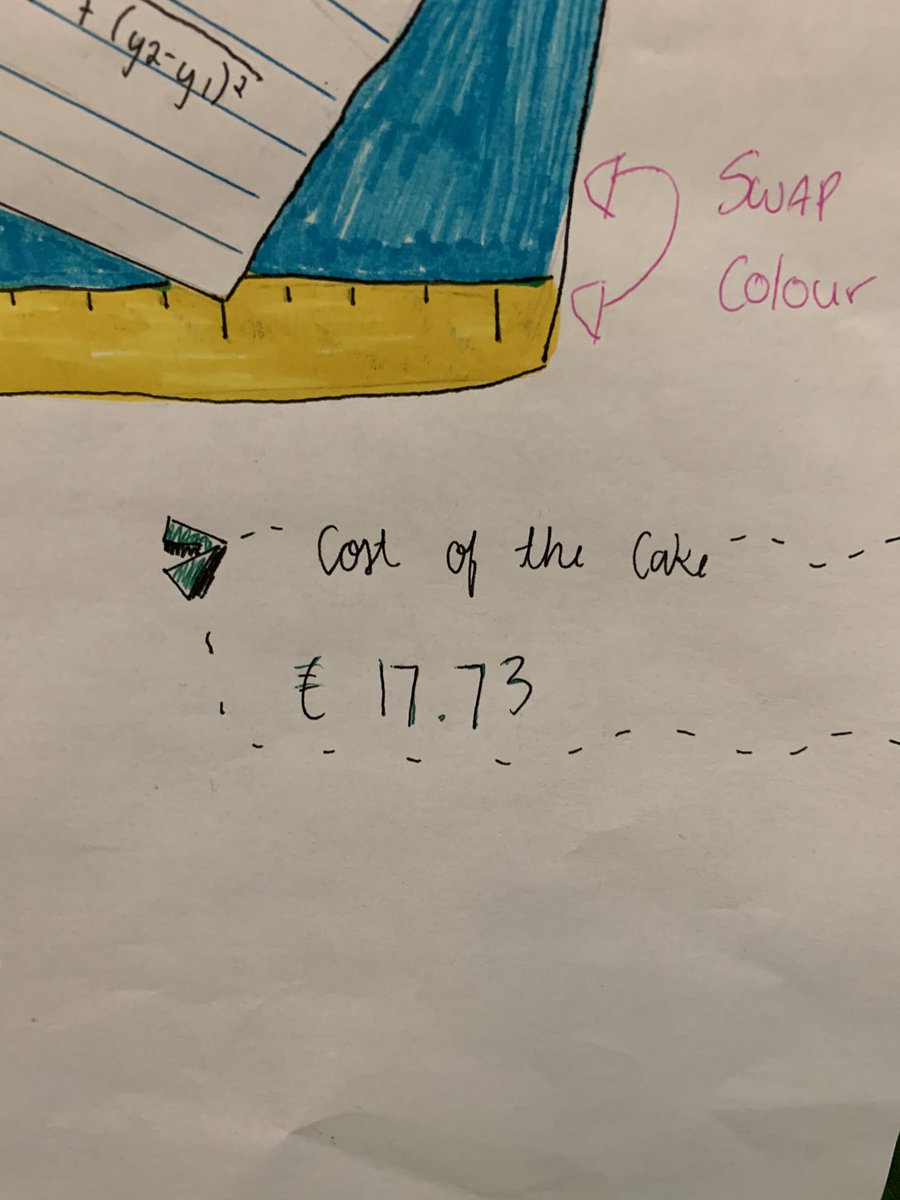 + (y2-y1)²
SWAP
Colour
Cost of the Cake
€ 17.73